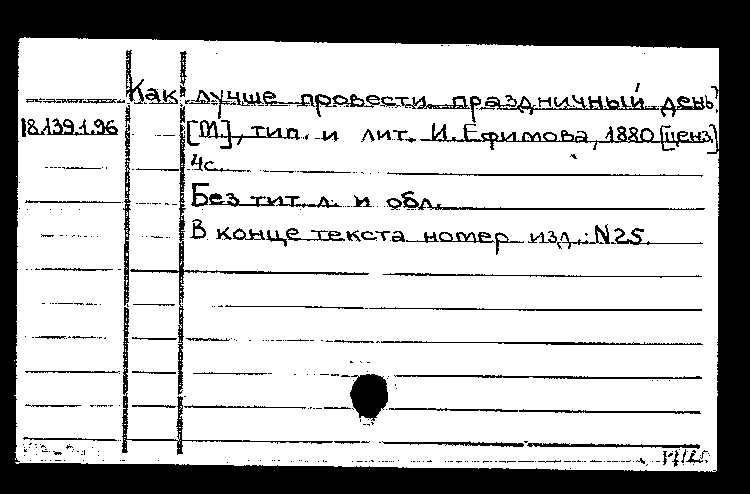 Как лучше провести праздничный день?
18.139.1.96 [М], тип. и лит. И. Ефимова, 1880 [ценз]
4с.
Без тит. л. и обл.
В конце текста номер изд.: N25.